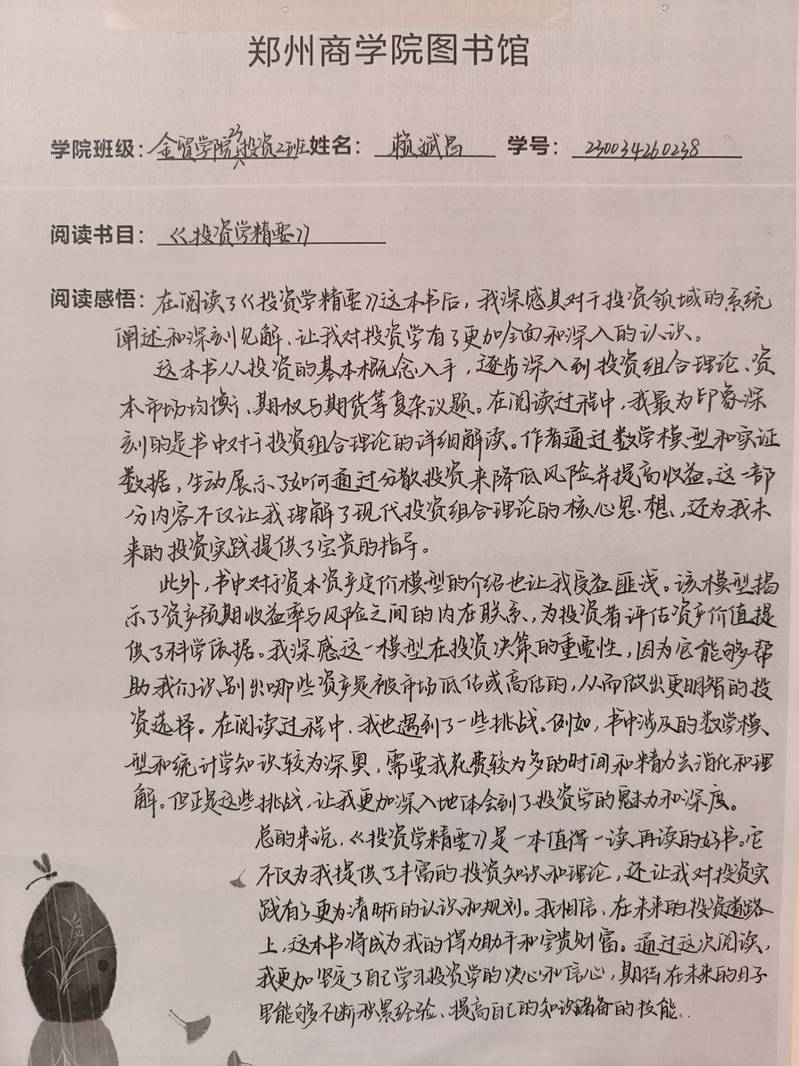 郑州商学院图书馆
学院班级：金贸学院23投资2班 姓名：赖斌昌 学号：230034260238
阅读书目：《投资学精要》
阅读感悟：在阅读了《投资学精要》这本书后，我深感其对于投资领域的系统
阐述和深刻见解、让我对投资学有了更加全面和深入的认识。
这本书从投资的基本概念入手，逐步深入到投资组合理论、资
本市场均衡、期权与期货等复杂议题。在阅读过程中，我最为印象深
刻的是书中对于投资组合理论的详细解读。作者通过数学模型和实证
数据，生动展示了如何通过分散投资来降低风险并提高收益。这一部
分内容不仅让我理解了现代投资组合理论的核心思想、还为我未
来的投资实践提供了宝贵的指导。
此外，书中对于资本资产定价模型的介绍也让我受益匪浅。该模型揭
示了资产预期收益率与风险之间的内在联系，为投资者评估资产价值提
供了科学依据。我深感这一模型在投资决策的重要性，因为它能够帮
助我们识别出哪些资产是被市场低估或高估的，从而做出更明智的投
资选择。在阅读过程中、我也遇到了一些挑战。例如，书中涉及的数学模
型和统计学知识较为深奥，需要我花费较为多的时间和精力去消化和理
解。但正是这些挑战，让我更加深入地体会到了投资学的魅力和深度。
总的来说，《投资学精要》是一本值得一读再读的好书。它
不仅为我提供了丰富的投资知识和理论，还让我对投资实
践有了更为清晰的认识和规划。我相信，在未来的投资道路
上，这本书将成为我的得力助手和宝贵财富。通过这次阅读，
我更加坚定了自己学习投资学的决心和信心，期待在未来的日子
里能够不断积累经验、提高自己的知识储备的技能.